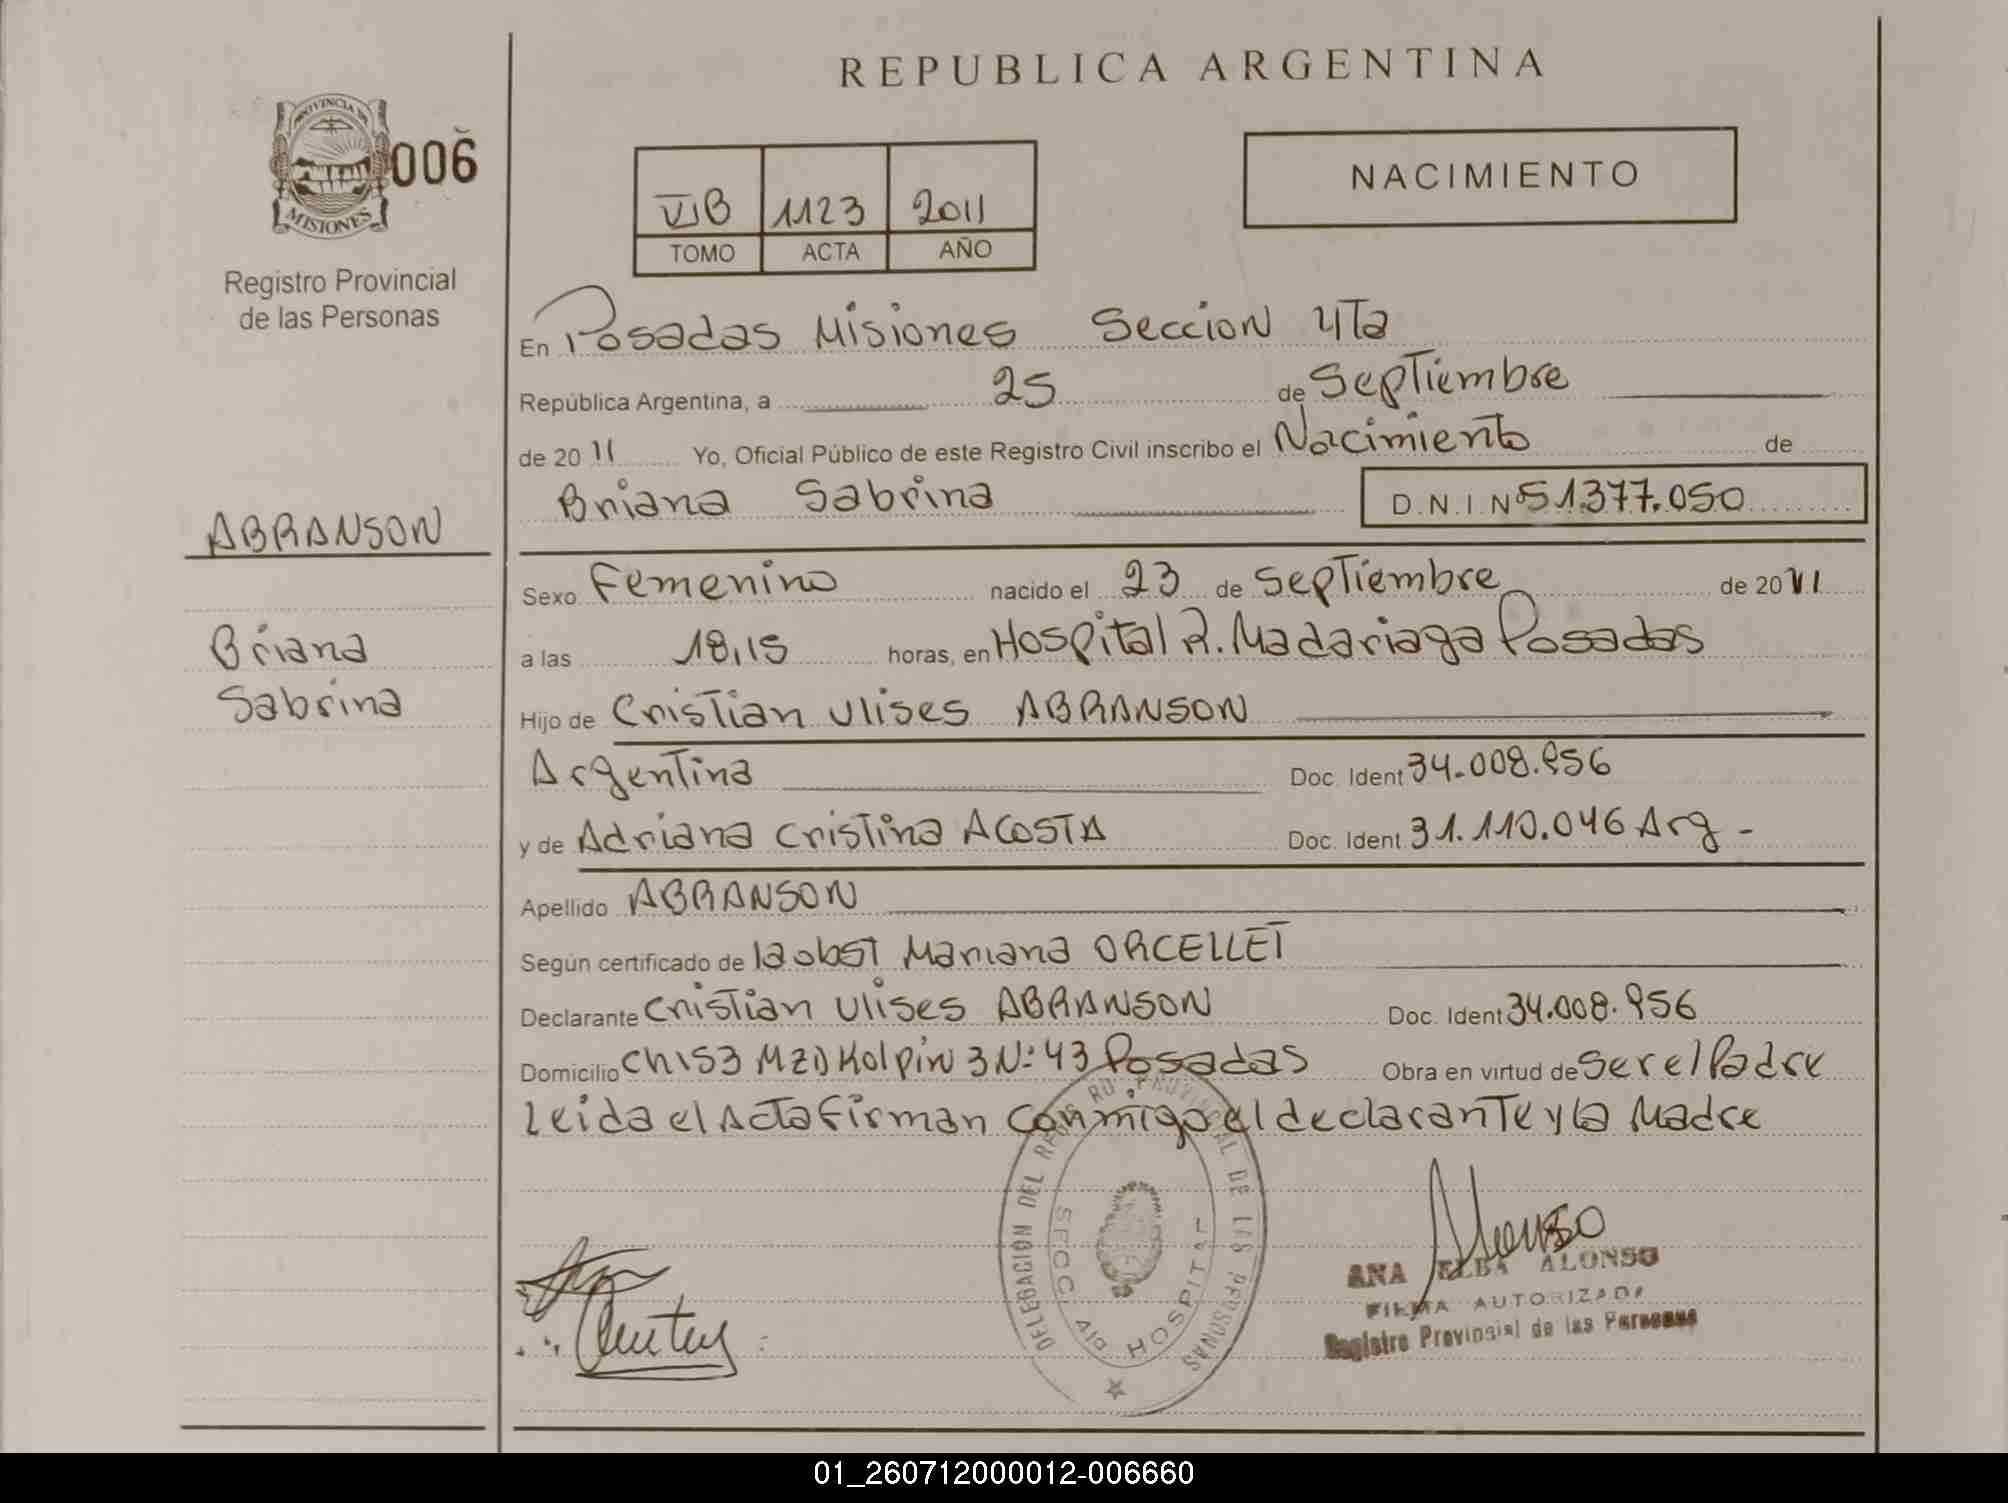 REPUBLICA ARGENTINA
PROVINCIA DE
MISIONES
006
Registro Provincial
de las Personas
VIB 1123 2011
TOMO ACTA AÑO
NACIMIENTO
En Posadas Misiones Seccion 4Ta
República Argentina, a 25 de Septiembre
de 2011 Yo, Oficial Público de este Registro Civil inscribo el Nacimiento de
Briana Sabrina D.N.I.Nº 51.377.050
ABRANSON
Briana
Sabrina
Sexo Femenino nacido el 23 de Septiembre de 2011
a las 18,15 horas, en Hospital R. Madariaga Posadas
Hijo de Cristian Ulises ABRANSON
Argentina Doc. Ident 34.008.956
y de Adriana Cristina ACOSTA Doc. Ident 31.110.046 Arg -
Apellido ABRANSON
Según certificado de la obst Mariana ORCELLET
Declarante Cristian Ulises ABRANSON Doc. Ident 34.008.956
Domicilio Ch153 MZD Kolpin 3 Nº 43 Posadas Obra en virtud de Ser el Padre
Leida el Acta firman conmigo el declarante y la Madre
DELEGACION DEL REGISTRO PROVINCIAL DE LAS PERSONAS
SECC. 4ta HOSPITAL
Alonso
ANA ELBA ALONSO
FIRMA AUTORIZADA
Registro Provincial de las Personas
01_260712000012-006660